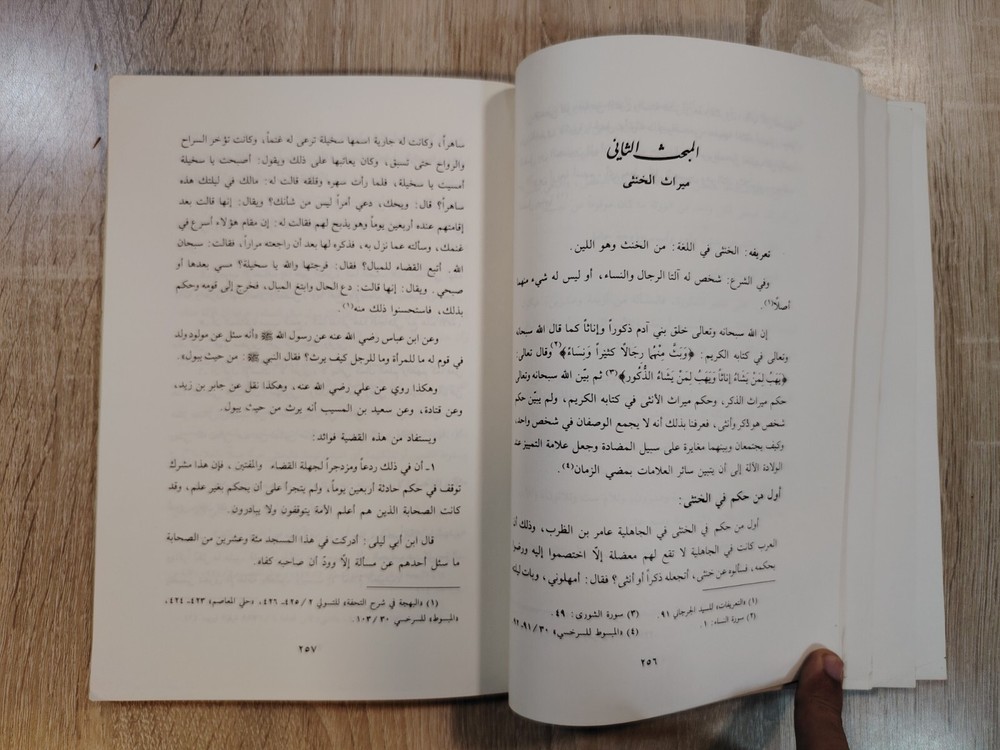 المبحث الثاني
ميراث الخنثى
تعريفه: الخنثى في اللغة: من الخنث وهو اللين.
وفي الشرع: شخص له آلتا الرجال والنساء، أو ليس له شيء منهما
أصلًا(١).
إن الله سبحانه وتعالى خلق بني آدم ذكوراً وإناثاً كما قال الله سبحانه
وتعالى في كتابه الكريم: ﴿وَبَثَّ مِنْهُمَا رِجَالًا كَثِيرًا وَنِسَاءً﴾(٢) وقال تعالى:
﴿يَهَبُ لِمَنْ يَشَاءُ إِنَاثًا وَيَهَبُ لِمَنْ يَشَاءُ الذُّكُورَ﴾(٣) ثم بيّن الله سبحانه وتعالى
حكم ميراث الذكر، وحكم ميراث الأنثى في كتابه الكريم، ولم يبيّن حكم
شخص هو ذكر وأنثى، فعرفنا بذلك أنه لا يجمع الوصفان في شخص واحد،
وكيف يجتمعان وبينهما مغايرة على سبيل المضادة وجعل علامة التمييز عند
الولادة الآلة إلى أن يتبين سائر العلامات بمضي الزمان(٤).
أول من حكم في الخنثى:
أول من حكم في الخنثى في الجاهلية عامر بن الظرب، وذلك أن
العرب كانت في الجاهلية لا تقع لهم معضلة إلّا اختصموا إليه ورضوا
بحكمه، فسألوه عن خنثى، أتجعله ذكراً أو أنثى؟ فقال: أمهلوني، وبات ليلته
(١) «التعريفات» للسيد الجرجاني ٩١.
(٢) سورة النساء: ١.
(٣) سورة الشورى: ٤٩.
(٤) «المبسوط للسرخسي» ٣٠/ ٩١، ٩٢.
٢٥٦
ساهراً، وكانت له جارية اسمها سخيلة ترعى له غنماً، وكانت تؤخر السراح
والرواح حتى تسبق، وكان يعاتبها على ذلك ويقول: أصبحت يا سخيلة
أمسيت يا سخيلة، فلما رأت سهره وقلقه قالت له: مالك في ليلتك هذه
ساهراً؟ قال: ويحك، دعي أمراً ليس من شأنك؟ ويقال: إنها قالت بعد
إقامتهم عنده أربعين يوماً وهو يذبح لهم فقالت له: إن مقام هؤلاء أسرع في
غنمك، وسألته عما نزل به، فذكره لها بعد أن راجعته مراراً، فقالت: سبحان
الله. أتبع القضاء للمبال؟ فقال: فرجتها والله يا سخيلة؟ مسي بعدها أو
صبحي. ويقال: إنها قالت: دع الحال وابتغ المبال، فخرج إلى قومه وحكم
بذلك، فاستحسنوا ذلك منه(١).
وعن ابن عباس رضي الله عنه عن رسول الله ﷺ «أنه سئل عن مولود ولد
في قوم له ما للمرأة وما للرجل كيف يرث؟ فقال النبي ﷺ: من حيث يبول».
وهكذا روي عن علي رضي الله عنه، وهكذا نقل عن جابر بن زيد،
وعن قتادة، وعن سعيد بن المسيب أنه يورث من حيث يبول.
ويستفاد من هذه القضية فوائد:
١ـ أن في ذلك ردعاً ومزدجراً لجهلة القضاء والمفتين، فإن هذا مشرك
توقف في حكم حادثة أربعين يوماً، ولم يتجرأ على أن يحكم بغير علم، وقد
كانت الصحابة الذين هم أعلم الأمة يتوقفون ولا يبادرون.
قال ابن أبي ليلى: أدركت في هذا المسجد مئة وعشرين من الصحابة
ما سئل أحدهم عن مسألة إلّا وودّ أن صاحبه كفاه.
(١) «البهجة في شرح التحفة» للتسولي ٢/ ٤٢٥ـ ٤٢٦، «حلي المعاصم» ٤٢٣ـ ٤٢٤،
«المبسوط» للسرخسي ٣٠/ ١٠٣.
٢٥٧